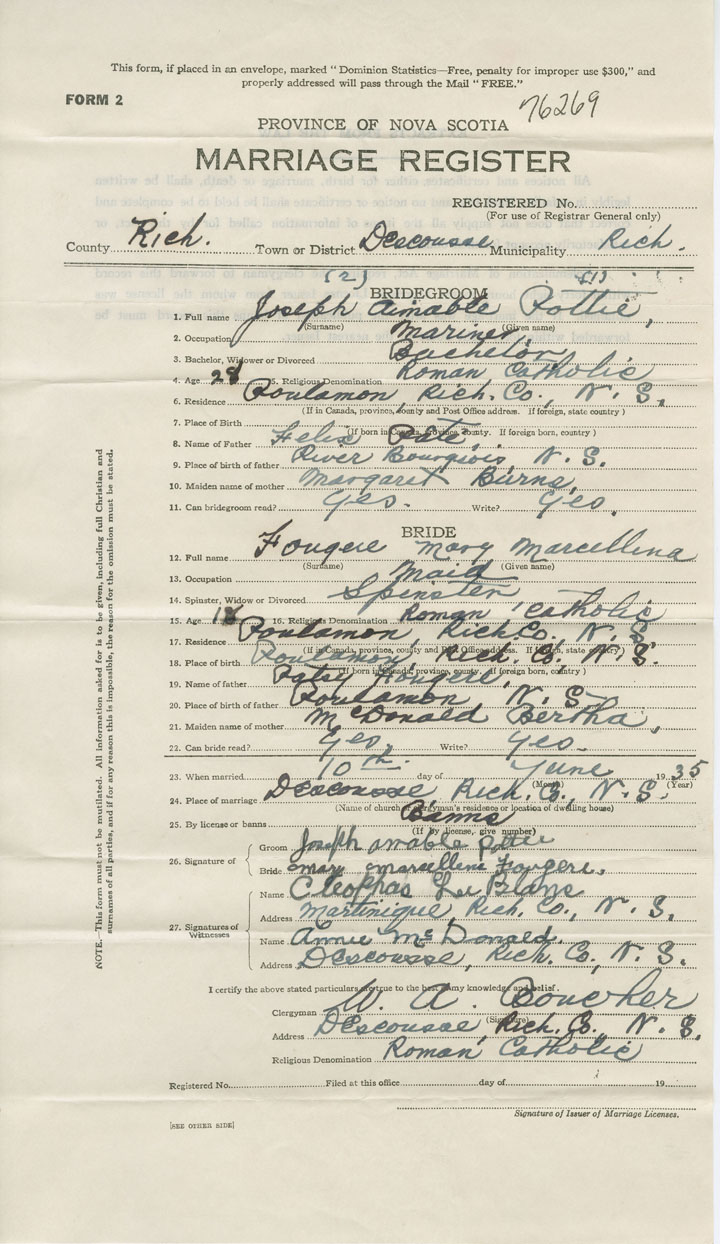 This form, if placed in an envelope, marked "Dominion Statistics—Free, penalty for improper use $300," and
properly addressed will pass through the Mail "FREE."
FORM 2
76269
PROVINCE OF NOVA SCOTIA
MARRIAGE REGISTER
REGISTERED No.
(For use of Registrar General only)
County Rich. Town or District Descousse Municipality Rich.
(2) (1)
BRIDEGROOM
1. Full name Joseph Aimable Pottie,
(Surname) (Given name)
2. Occupation Mariner,
3. Bachelor, Widower or Divorced Bachelor
4. Age 28 5. Religious Denomination Roman Catholic
6. Residence Poulamon, Rich. Co., N. S.,
(If in Canada, province, county and Post Office address. If foreign, state country)
7. Place of Birth
(If born in Canada, province, county. If foreign born, country)
8. Name of Father Felix Pate,
9. Place of birth of father River Bourgeois N. S.
10. Maiden name of mother Margaret Burns,
11. Can bridegroom read? Yes. Write? Yes.
BRIDE
12. Full name Fougere Mary Marcellina
(Surname) (Given name)
13. Occupation Maid
14. Spinster, Widow or Divorced Spinster
15. Age 18 16. Religious Denomination Roman Catholic
17. Residence Poulamon, Rich Co., N. S.
(If in Canada, province, county and Post Office address. If foreign, state country)
18. Place of birth Poulamon, Rich. Co. N. S.
(If born in Canada, province, county. If foreign born, country)
19. Name of father Patsy Fougere,
20. Place of birth of father Poulamon N. S.
21. Maiden name of mother McDonald Bertha,
22. Can bride read? Yes, Write? Yes.
23. When married 10th. day of June 1935
(Month) (Year)
24. Place of marriage Descousse, Rich. Co., N. S.
(Name of church clergyman's residence or location of dwelling house)
25. By license or banns Banns
(If by license, give number)
26. Signature of
Groom Joseph amable pottie
Bride mary marcelline Fougere.
27. Signatures of Witnesses
Name Cleophas Le Blanc
Address Martinique, Rich. Co., N. S.
Name Annie McDonald.
Address Descousse, Rich. Co., N. S.
I certify the above stated particulars are true to the best of my knowledge and belief.
Clergyman W. A. Boucher
(Signature)
Address Descousse, Rich. Co., N. S.
Religious Denomination Roman Catholic
Registered No. Filed at this office day of 19
Signature of Issuer of Marriage Licenses.
[SEE OTHER SIDE]
NOTE.—This form must not be mutilated. All information asked for is to be given, including full Christian and
surnames of all parties, and if for any reason this is impossible, the reason for the omission must be stated.